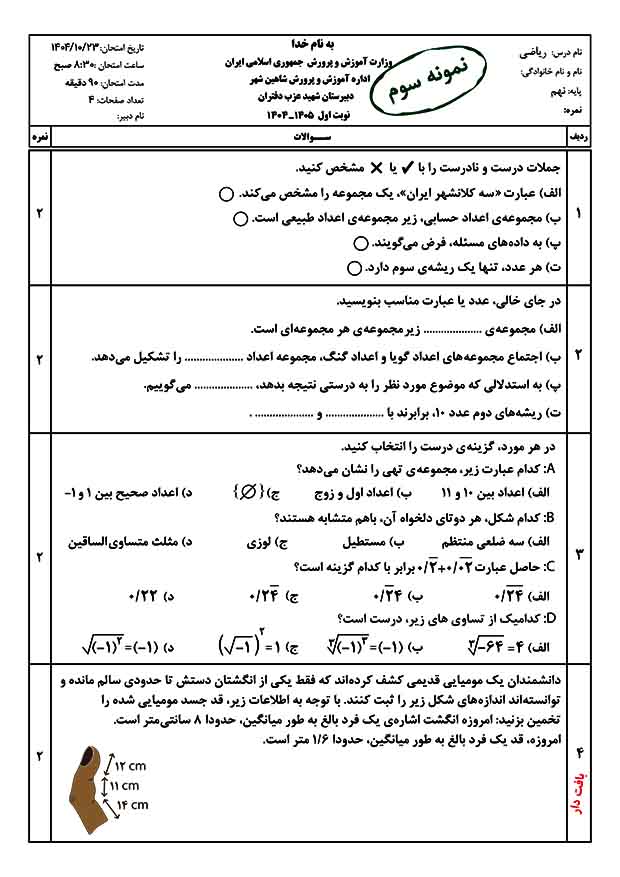 به نام خدا
نام درس: ریاضی
نام و نام خانوادگی:
پایه: نهم
نمره:
نمونه سوم
وزارت آموزش و پرورش جمهوری اسلامی ایران
اداره آموزش و پرورش شاهین شهر
دبیرستان شهید عزب دفتران
نوبت اول ۱۴۰۵_۱۴۰۴
تاریخ امتحان: ۱۴۰۴/۱۰/۲۳
ساعت امتحان: ۸:۳۰ صبح
مدت امتحان: ۹۰ دقیقه
تعداد صفحات: ۴
نام دبیر:
ردیف سـوالات نمره
۱
جملات درست و نادرست را با ✔ یا ✖ مشخص کنید.
الف) عبارت «سه کلانشهر ایران»، یک مجموعه را مشخص می‌کند. ◯
ب) مجموعه‌ی اعداد حسابی، زیر مجموعه‌ی اعداد طبیعی است. ◯
پ) به داده‌های مسئله، فرض می‌گویند. ◯
ت) هر عدد، تنها یک ریشه‌ی سوم دارد. ◯
۲
۲
در جای خالی، عدد یا عبارت مناسب بنویسید.
الف) مجموعه‌ی .................... زیرمجموعه‌ی هر مجموعه‌ای است.
ب) اجتماع مجموعه‌های اعداد گویا و اعداد گنگ، مجموعه اعداد .................... را تشکیل می‌دهد.
پ) به استدلالی که موضوع مورد نظر را به درستی نتیجه بدهد، .................... می‌گوییم.
ت) ریشه‌های دوم عدد ۱۰، برابرند با .................... و .................... .
۲
۳
در هر مورد، گزینه‌ی درست را انتخاب کنید.
A: کدام عبارت زیر، مجموعه‌ی تهی را نشان می‌دهد؟
الف) اعداد بین ۱۰ و ۱۱ ب) اعداد اول و زوج ج) {∅} د) اعداد صحیح بین ۱ و ۱-
B: کدام شکل، هر دوتای دلخواه آن، باهم متشابه هستند؟
الف) سه ضلعی منتظم ب) مستطیل ج) لوزی د) مثلث متساوی‌الساقین
C: حاصل عبارت ۰/۲̅+۰/۰۲̅ برابر با کدام گزینه است؟
الف) ۰/۲۴̅ ب) ۰/۲۴̅ ج) ۰/۲۴̅ د) ۰/۲۲
D: کدامیک از تساوی های زیر، درست است؟
الف) ∛-۶۴ = ۴ ب) ∛(-۱)³ = (-۱) ج) (√-۱)² = ۱ د) √(-۱)² = (-۱)
۲
۴
بافت دار
دانشمندان یک مومیایی قدیمی کشف کرده‌اند که فقط یکی از انگشتان دستش تا حدودی سالم مانده و
توانسته‌اند اندازه‌های شکل زیر را ثبت کنند. با توجه به اطلاعات زیر، قد جسد مومیایی شده را
تخمین بزنید: امروزه انگشت اشاره‌ی یک فرد بالغ به طور میانگین، حدودا ۸ سانتی‌متر است.
امروزه، قد یک فرد بالغ به طور میانگین، حدودا ۱/۶ متر است.
۱۲ cm
۱۱ cm
۱۴ cm
۲